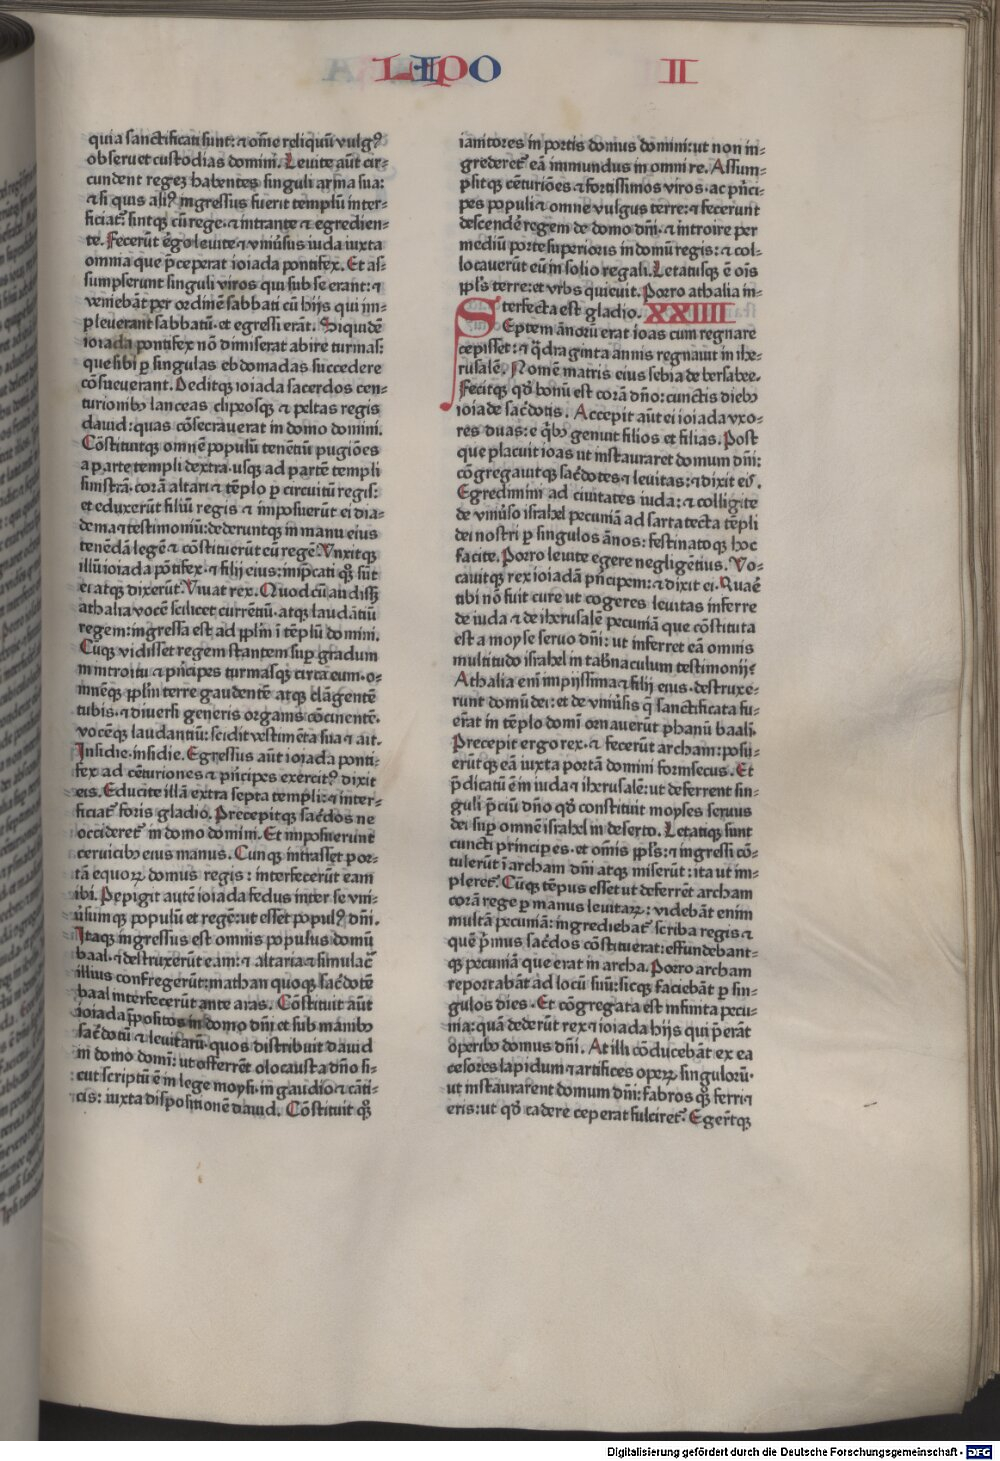 LIPO II
quia sanctificati sunt: ⁊ om̄e reliquū vulgꝰ
obseruet custodias domini. Leuite aūt cir-
cundent regeꝫ habentes singuli arma sua:
⁊ si quis aliꝰ ingressus fuerit templū inter-
ficiat᷑: sintqꝫ cū rege. ⁊ intrante ⁊ egredien-
te. Fecerūt ḡo leuite ⁊ vniūsus iuda iuxta
omnia que p̄ceperat ioiada pontifex. Et as-
sumpserunt singuli viros qui sub se erant: ⁊
veniebāt per ordinē sabbati cū hijs qui im-
pleuerant sabbatū. et egressi erāt. Siquidē
ioiada pontifex nō dimiserat abire turmas:
que sibi ꝑ singulas ebdomadas succedere
cōsueuerant. Deditqꝫ ioiada sacerdos cen-
turionibꝫ lanceas clipeosqꝫ ⁊ peltas regis
dauid: quas cōsecrauerat in domo domini.
Cōstituitqꝫ omnē populū tenētiū pugiōes
a parte templi dextra. usqꝫ ad partē templi
sinistrā. corā altari ⁊ tēplo ꝑ circuitū regis:
et eduxerūt filiū regis ⁊ imposuerūt ei dia-
dema ⁊ testimoniū: dederuntqꝫ in manu eius
tenēdā legē ⁊ cōstituerūt eū regē. Vnxitqꝫ
illū ioiada pōtifex. ⁊ filij eius: imp̄cati qꝫ sūt
ei atqꝫ dixerūt. Viuat rex. Quod cū audissꝫ
athalia vocē scilicet currētiū. atqꝫ laudātiū
regem: ingressa est ad ppl̄m ī tēplū domini.
Cūqꝫ vidisset regem stantem suꝑ gradum
in introitu ⁊ p̄ncipes turmasqꝫ circa eum. o-
mnēqꝫ ppl̄m terre gaudentē atqꝫ clāgentē
tubis. ⁊ diuersi generis organis cōcinentē.
vocēqꝫ laudantiū: scidit vestimēta sua ⁊ ait.
Insidie. insidie. Egressus aūt ioiada ponti-
fex ad cēturiones ⁊ p̄ncipes exercitꝰ dixit
eis. Educite illā extra septa templi: ⁊ inter-
ficiat᷑ foris gladio. Precepitqꝫ sac̄dos ne
occideret᷑ in domo domini. Et imposuerunt
ceruicibꝫ eius manus. Cunqꝫ intrasset por-
tā equoꝝ domus regis: interfecerūt eam
ibi. Pepigit autē ioiada fedus inter se vni-
ūsumqꝫ populū et regē: ut esset populꝰ dn̄i.
Itaqꝫ ingressus est omnis populus domū
baal. ⁊ destruxerūt eam: ⁊ altaria ⁊ simulac̄
illius confregerūt: mathan quoqꝫ sac̄dotē
baal interfecerūt ante aras. Cōstituit aūt
ioiada p̄positos in domo dn̄i et sub manibꝫ
sac̄dotū ⁊ leuitarū. quos distribuit dauid
in domo domī: ut offerrēt olocausta dn̄o si-
cut scriptū ē in lege moysi. in gaudio ⁊ cāti-
cis: iuxta dispositionē dauid. Cōstituit qꝫ
ianitores in portis domus domini: ut non in-
grederet᷑ eā immundus in omni re. Assum-
psitqꝫ cēturiōes ⁊ fortissimos viros. ac p̄nci-
pes populi ⁊ omne vulgus terre: ⁊ fecerunt
descendē regem de domo dn̄i. ⁊ introire per
mediū porte superioris in domū regis: ⁊ col-
locauerūt eū in solio regali. Letatusqꝫ ē ōis
ppl̄s terre: et vrbs quieuit. Porro athalia in-
terfecta est gladio. XXIIII
Septem ānoꝝ erat ioas cum regnare
cepisset: ⁊ q̄draginta annis regnauit in ihe-
rusalē. Nomē matris eius sebia de bersabee.
Fecitqꝫ qđ bonū est corā dn̄o: cunctis diebꝫ
ioiade sac̄dotis. Accepit aūt ei ioiada vxo-
res duas: e qꝫ genuit filios et filias. Post
que placuit ioas ut instauraret domum dn̄i:
cōgregauitqꝫ sac̄dotes ⁊ leuitas: ⁊ dixit eis̄.
Egredimini ad ciuitates iuda: ⁊ colligite
de vniūso israhel pecuniā ad sartatecta tēpli
dei nostri ꝑ singulos ānos: festinatoqꝫ hoc
facite. Porro leuite egere negligētius. Vo-
cauitqꝫ rex ioiadā p̄ncipem: ⁊ dixit ei. Quare
tibi nō fuit cure ut cogeres leuitas inferre
de iuda ⁊ de iherusalē pecuniā que cōstituta
est a moyse seruo dn̄i: ut inferret eā omnis
multitudo israhel in tab̄naculum testimonij?
Athalia eni impijssima ⁊ filij eius. destruxe-
runt domū dei: et de vniūsis q̄ sanctificata fu-
erāt in tēplo domī ornauerūt phanū baali.
Precepit ergo rex. ⁊ fecerūt archam: posu-
erūtqꝫ eā iuxta portā domini forinsecus. Et
p̄dicatū ē in iuda ⁊ iherusalē: ut deferrent sin-
guli p̄ciū dn̄o qđ constituit moyses seruus
dei suꝑ omnē israhel in deserto. Letatiqꝫ sunt
cuncti principes. et om̄is ppl̄s: ⁊ ingressi cō-
tulerūt ī archam dn̄i atqꝫ miserūt: ita ut im-
pleret᷑. Cūqꝫ tēpus esset ut deferrēt archam
corā rege ꝑ manus leuitaꝝ: videbāt enim
multā pecuniā: ingrediebat᷑ scriba regis ⁊
quē p̄mus sac̄dos cōstituerat: effundebant-
qꝫ pecuniā que erat in archa. Porro archam
reportabāt ad locū suū: sicqꝫ faciebāt ꝑ sin-
gulos dies. Et cōgregata est infinita pecu-
nia: quā dederūt rex ⁊ ioiada hijs qui p̄erāt
operibꝫ domus dn̄i. At illi cōducebāt ex ea
cesores lapidum ⁊ artifices opeꝝ singulorū.
ut instaurarent domum dn̄i: fabros qꝫ ferri ⁊
eris: ut qđ cadere ceperat fulciret᷑. Egerūtqꝫ
Digitalisierung gefördert durch die Deutsche Forschungsgemeinschaft - DFG